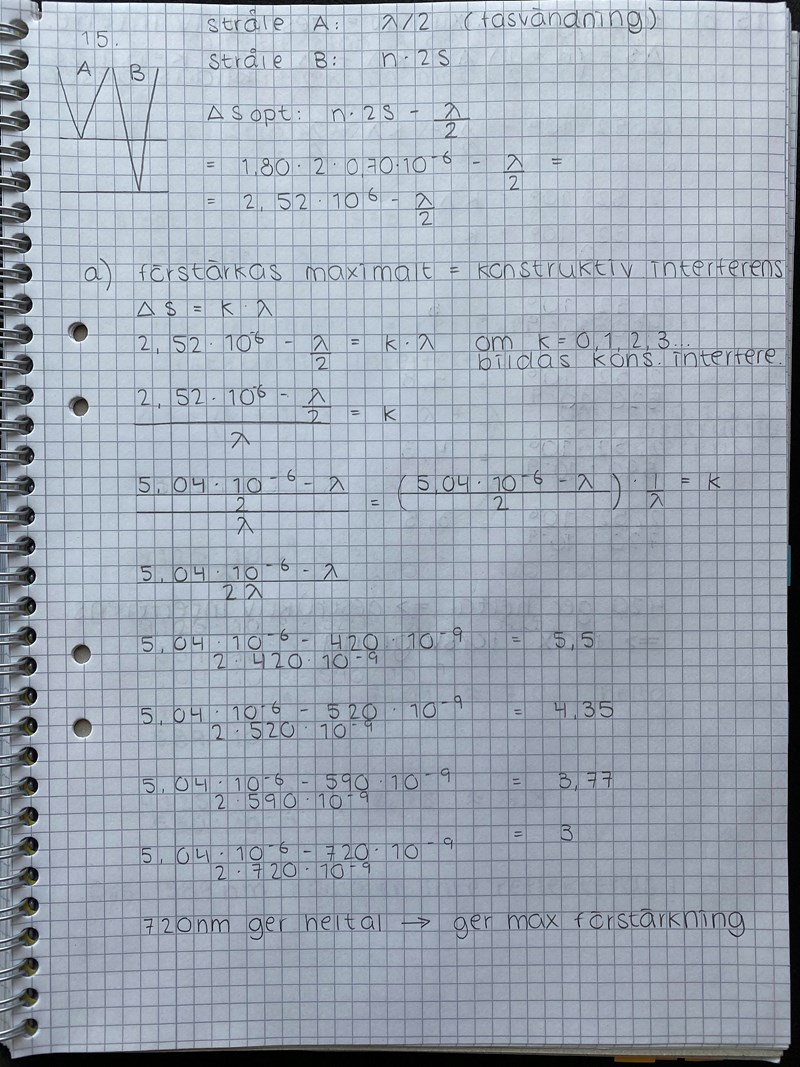 15.
stråle A: λ/2 (fasvändning)
stråle B: n·2s
A B
Δs opt: n·2s - λ/2
= 1,80·2·0,70·10⁻⁶ - λ/2 =
= 2,52·10⁶ - λ/2
a) förstärkas maximalt = konstruktiv interferens
Δs = k·λ
2,52·10⁻⁶ - λ/2 = k·λ om k=0,1,2,3...
bildas kons. interfere.
(2,52·10⁻⁶ - λ/2)/λ = k
((5,04·10⁻⁶ - λ)/2)/λ = ((5,04·10⁻⁶ - λ)/2)·1/λ = k
(5,04·10⁻⁶ - λ)/2λ
(5,04·10⁻⁶ - 420·10⁻⁹)/(2·420·10⁻⁹) = 5,5
(5,04·10⁻⁶ - 520·10⁻⁹)/(2·520·10⁻⁹) = 4,35
(5,04·10⁻⁶ - 590·10⁻⁹)/(2·590·10⁻⁹) = 3,77
(5,04·10⁻⁶ - 720·10⁻⁹)/(2·720·10⁻⁹) = 3
720nm ger heltal → ger max förstärkning